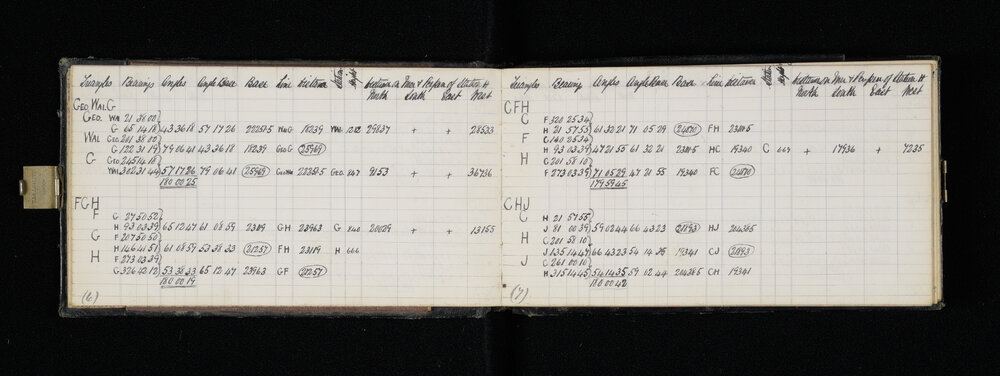 Triangles Bearings Angles Angle Base Base Line Distance Station Height Distance on Mer & Perpen of Station H
North South East West
GEO. WAL. G
GEO. WAL 21 38 00
G 65 14 18 43 36 18 57 17 26 22251.5 WAL G 18239 WAL 1282 29827 + + 28533
WAL GEO 201 38 00
G 122 31 19 79 06 41 43 36 18 18239 GEO G 25969
G GEO 245 14 18
WAL 302 31 44 57 17 26 79 06 41 25969 GEO WAL 22251.5 GEO. 847 9153 36736
180 00 25
FGH
F G 27 50 52
H 93 03 39 65 12 47 61 08 59 23119 GH 23963 G 840 20029 + + 13155
G F 207 50 50
H 146 41 51 61 08 59 53 38 33 21257 FH 23119 H 666
H F 273 03 39
G 326 42 12 53 38 33 65 12 47 23963 GF 21257
180 00 19
(6)
Triangles Bearing Angles Angle Base Base Line Distance Station Height Distance on Mer & Perpen of Station H
North South East West
CFH
C F 320 25 34
H 21 57 53 61 32 21 71 05 29 24870 FH 23110.5
F C 140 25 34
H 93 03 39 47 21 55 61 32 21 23110.5 HC 19340 C 669 + 17936 + 7235
H C 201 58 10
F 273 03 39 71 05 29 47 21 55 19340 FC 24870
179 59 45
CHJ
C H 21 57 55
J 81 00 39 59 02 44 66 43 23 21893 HJ 20438.5
H C 201 58 10
J 135 14 47 66 43 23 54 14 35 19341 CJ 21893
J C 261 00 10
H 315 14 45 54 14 35 59 02 44 20438.5 CH 19341
180 00 42
(7)